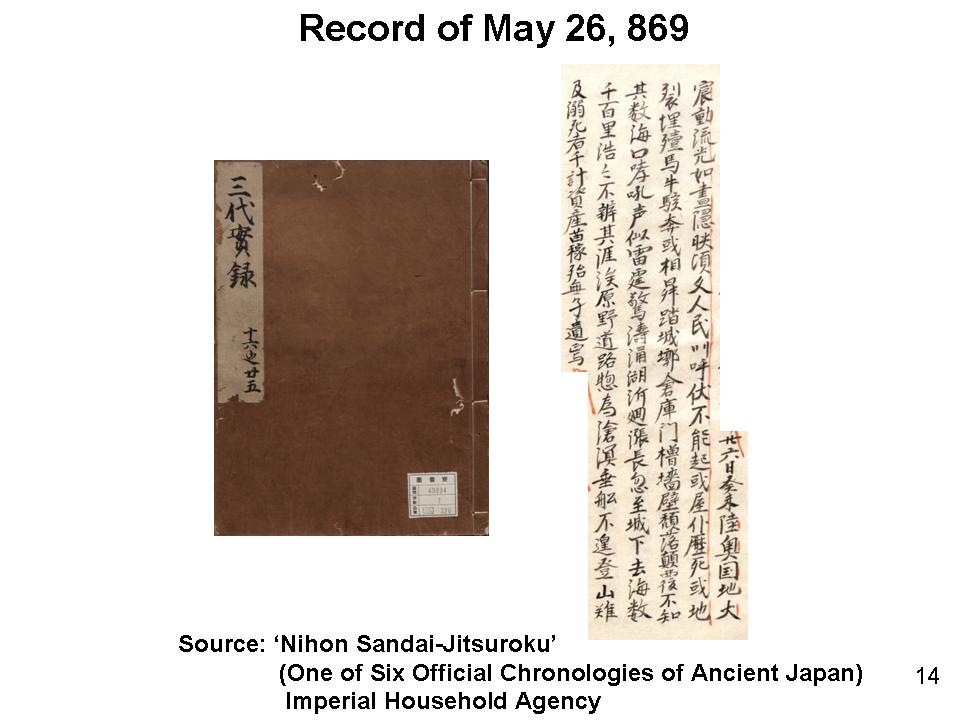 Record of May 26, 869
三代實録
十六之廿五
廿六日癸未陸奥国地大
震動流光如晝隠映頃之人民叫呼伏不能起或屋仆壓死或地
裂埋殪馬牛駭奔或相昇踏城墎倉庫門櫓墻壁頽落顛覆不知
其数海口哮吼声似雷霆驚濤涌湖泝洄漲長忽至城下去海数
千百里浩々不辨其涯涘原野道路惣為滄溟乗舩不遑登山難
及溺死者千計資産苗稼殆無孑遺焉
Source: ‘Nihon Sandai-Jitsuroku’
(One of Six Official Chronologies of Ancient Japan)
Imperial Household Agency
14